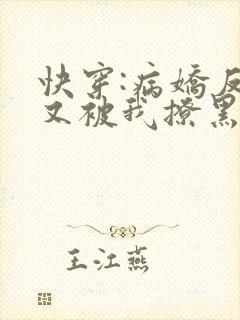 快穿:病娇反
又被我撩黑
王江燕